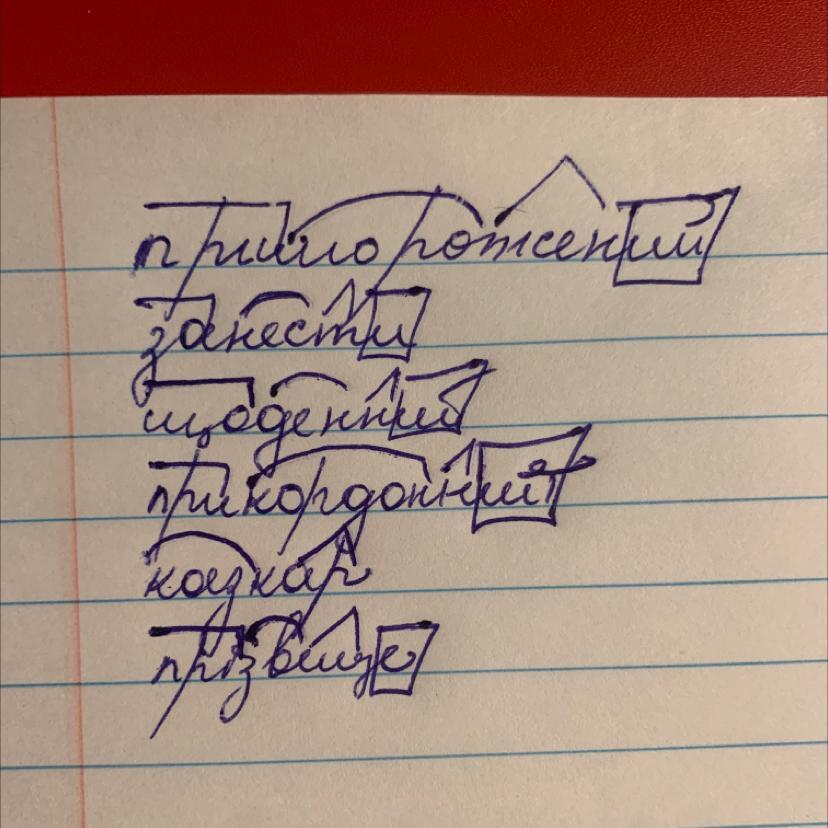 приморожений
занести
щоденний
прикордонний
казкар
прізвище